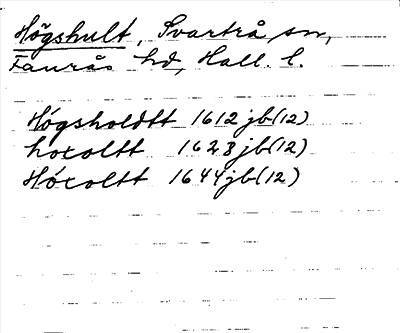 Högshult, Svartrå sn,
Faurås hd, Hall. l.
Högsholdtt 1612 jb(12)
hoxoltt 1628 jb(12)
Hóxoltt 1644 jb(12)